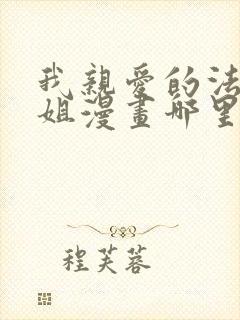 我親愛的法
姐漫畫哪里
程芙蓉